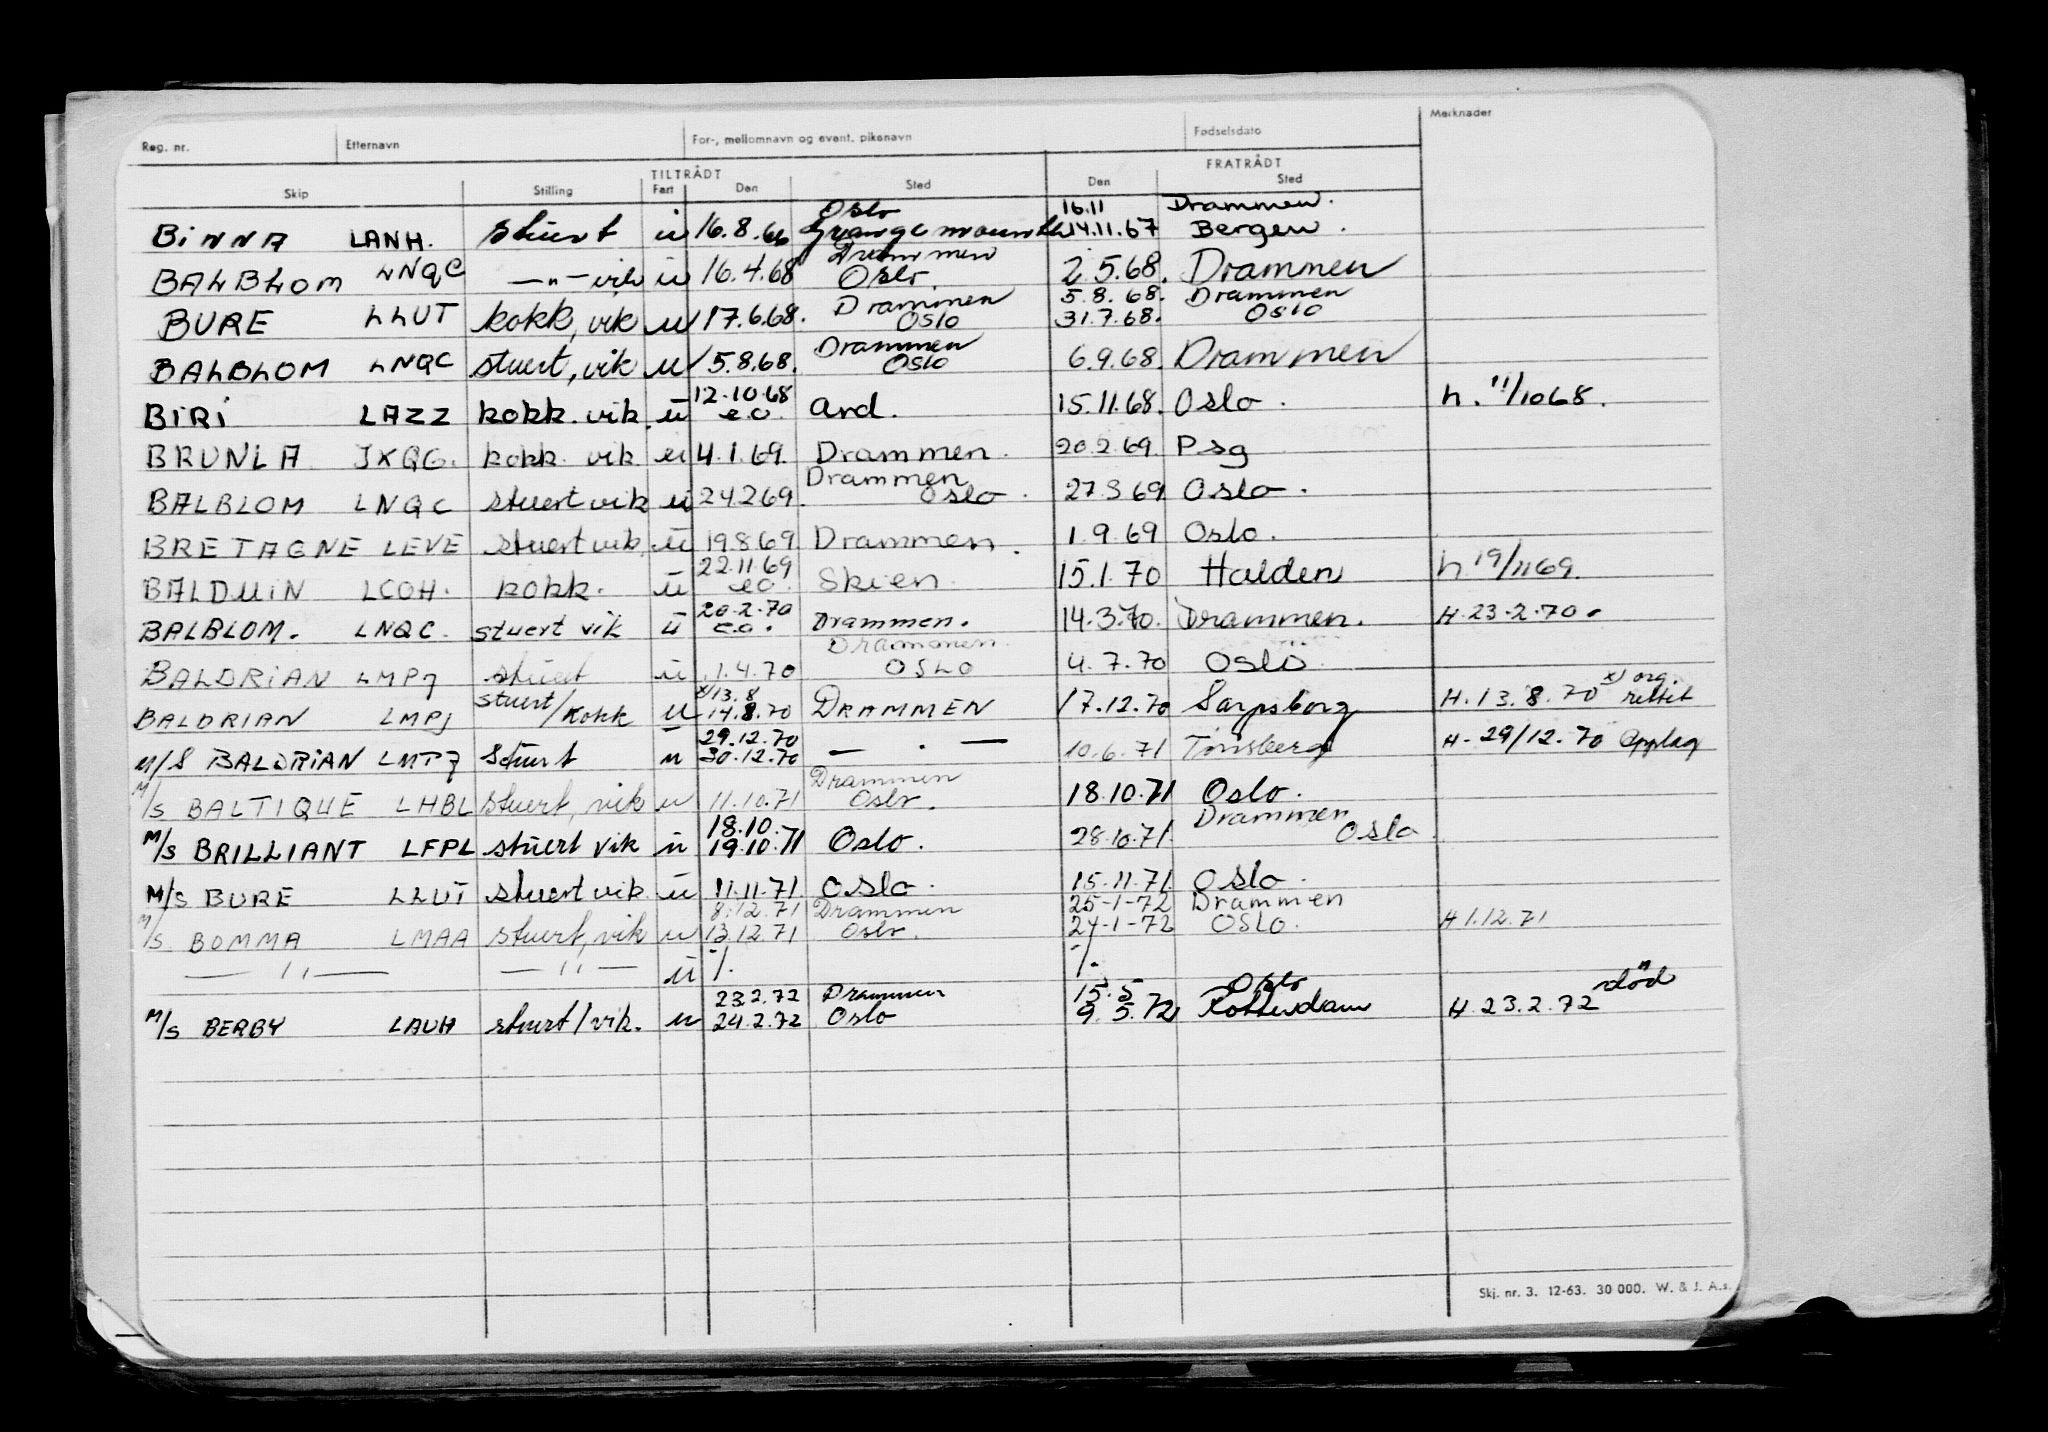 Reg. nr. Etternavn For-, mellomnavn og event. pikenavn Fødselsdato Merknader
TILTRÅDT FRATRÅDT
Skip Stilling Fart Den Sted Den Sted
Oslo 16.11 Drammen.
BINNA LANH. stuert u 16.8.66 Grangemouth 14.11.67 Bergen.
Drammen
BALBLOM LNQC —"— vik u 16.4.68 Oslo. 2.5.68. Drammen
Drammen 5.8.68. Drammen
BURE LLUT kokk, vik u 17.6.68. Oslo 31.7.68. Oslo
Drammen
BALBLOM LNQC stuert, vik u 5.8.68. Oslo 6.9.68. Drammen
12.10.68
BIRI LAZZ kokk. vik. u e.o. Ard. 15.11.68. Oslo. h. 11/1068.
BRUNLA JXQG. kokk. vik u 4.1.69. Drammen. 20.2.69. Psg
Drammen
BALBLOM LNQC stuert vik u 24269. Oslo. 27.3.69 Oslo.
BRETAGNE LEVE stuert vik. u 19.8.69 Drammen. 1.9.69 Oslo.
22.11.69
BALDUIN LCOH. kokk. u eo. Skien. 15.1.70 Halden h. 19/1169.
20.2.70
BALBLOM. LNQC. stuert vik u e.o. Drammen. 14.3.70. Drammen. H.23.2.70.
Drammen.
BALDRIAN LMPJ stuert u 1.4.70 OSLO 4.7.70 Oslo.
stuert x)13.8 x) org.
BALDRIAN LMPJ /kokk u 14.8.70 DRAMMEN 17.12.70 Sarpsborg H.13.8.70 rettet
29.12.70
M/S BALDRIAN LMPJ stuert u 30.12.70 — . — 10.6.71 Tønsberg H-29/12.70 Opplag
Drammen
M/S BALTIQUE LHBL stuert, vik u 11.10.71 Oslo. 18.10.71 Oslo.
18.10. Drammen
M/S BRILLIANT LFPL stuert vik u 19.10.71 Oslo. 28.10.71. Oslo
M/S BURE LLUT stuert vik. u 11.11.71. Oslo. 15.11.71. Oslo.
8.12.71 Drammen 25-1-72 Drammen
M/S. BOMMA LMAA stuert, vik u 13.12.71 Oslo. 24-1-72 OSLO. H 1.12.71
— " — — " — u -/. -/.
23.2.72 Drammen 15.5 Oslo død
M/S BERBY LAUH stuert/vik. u 24.2.72 Oslo 9.5.72 Rotterdam H.23.2.72
Skj. nr. 3. 12-63. 30 000. W. & J. A.s.